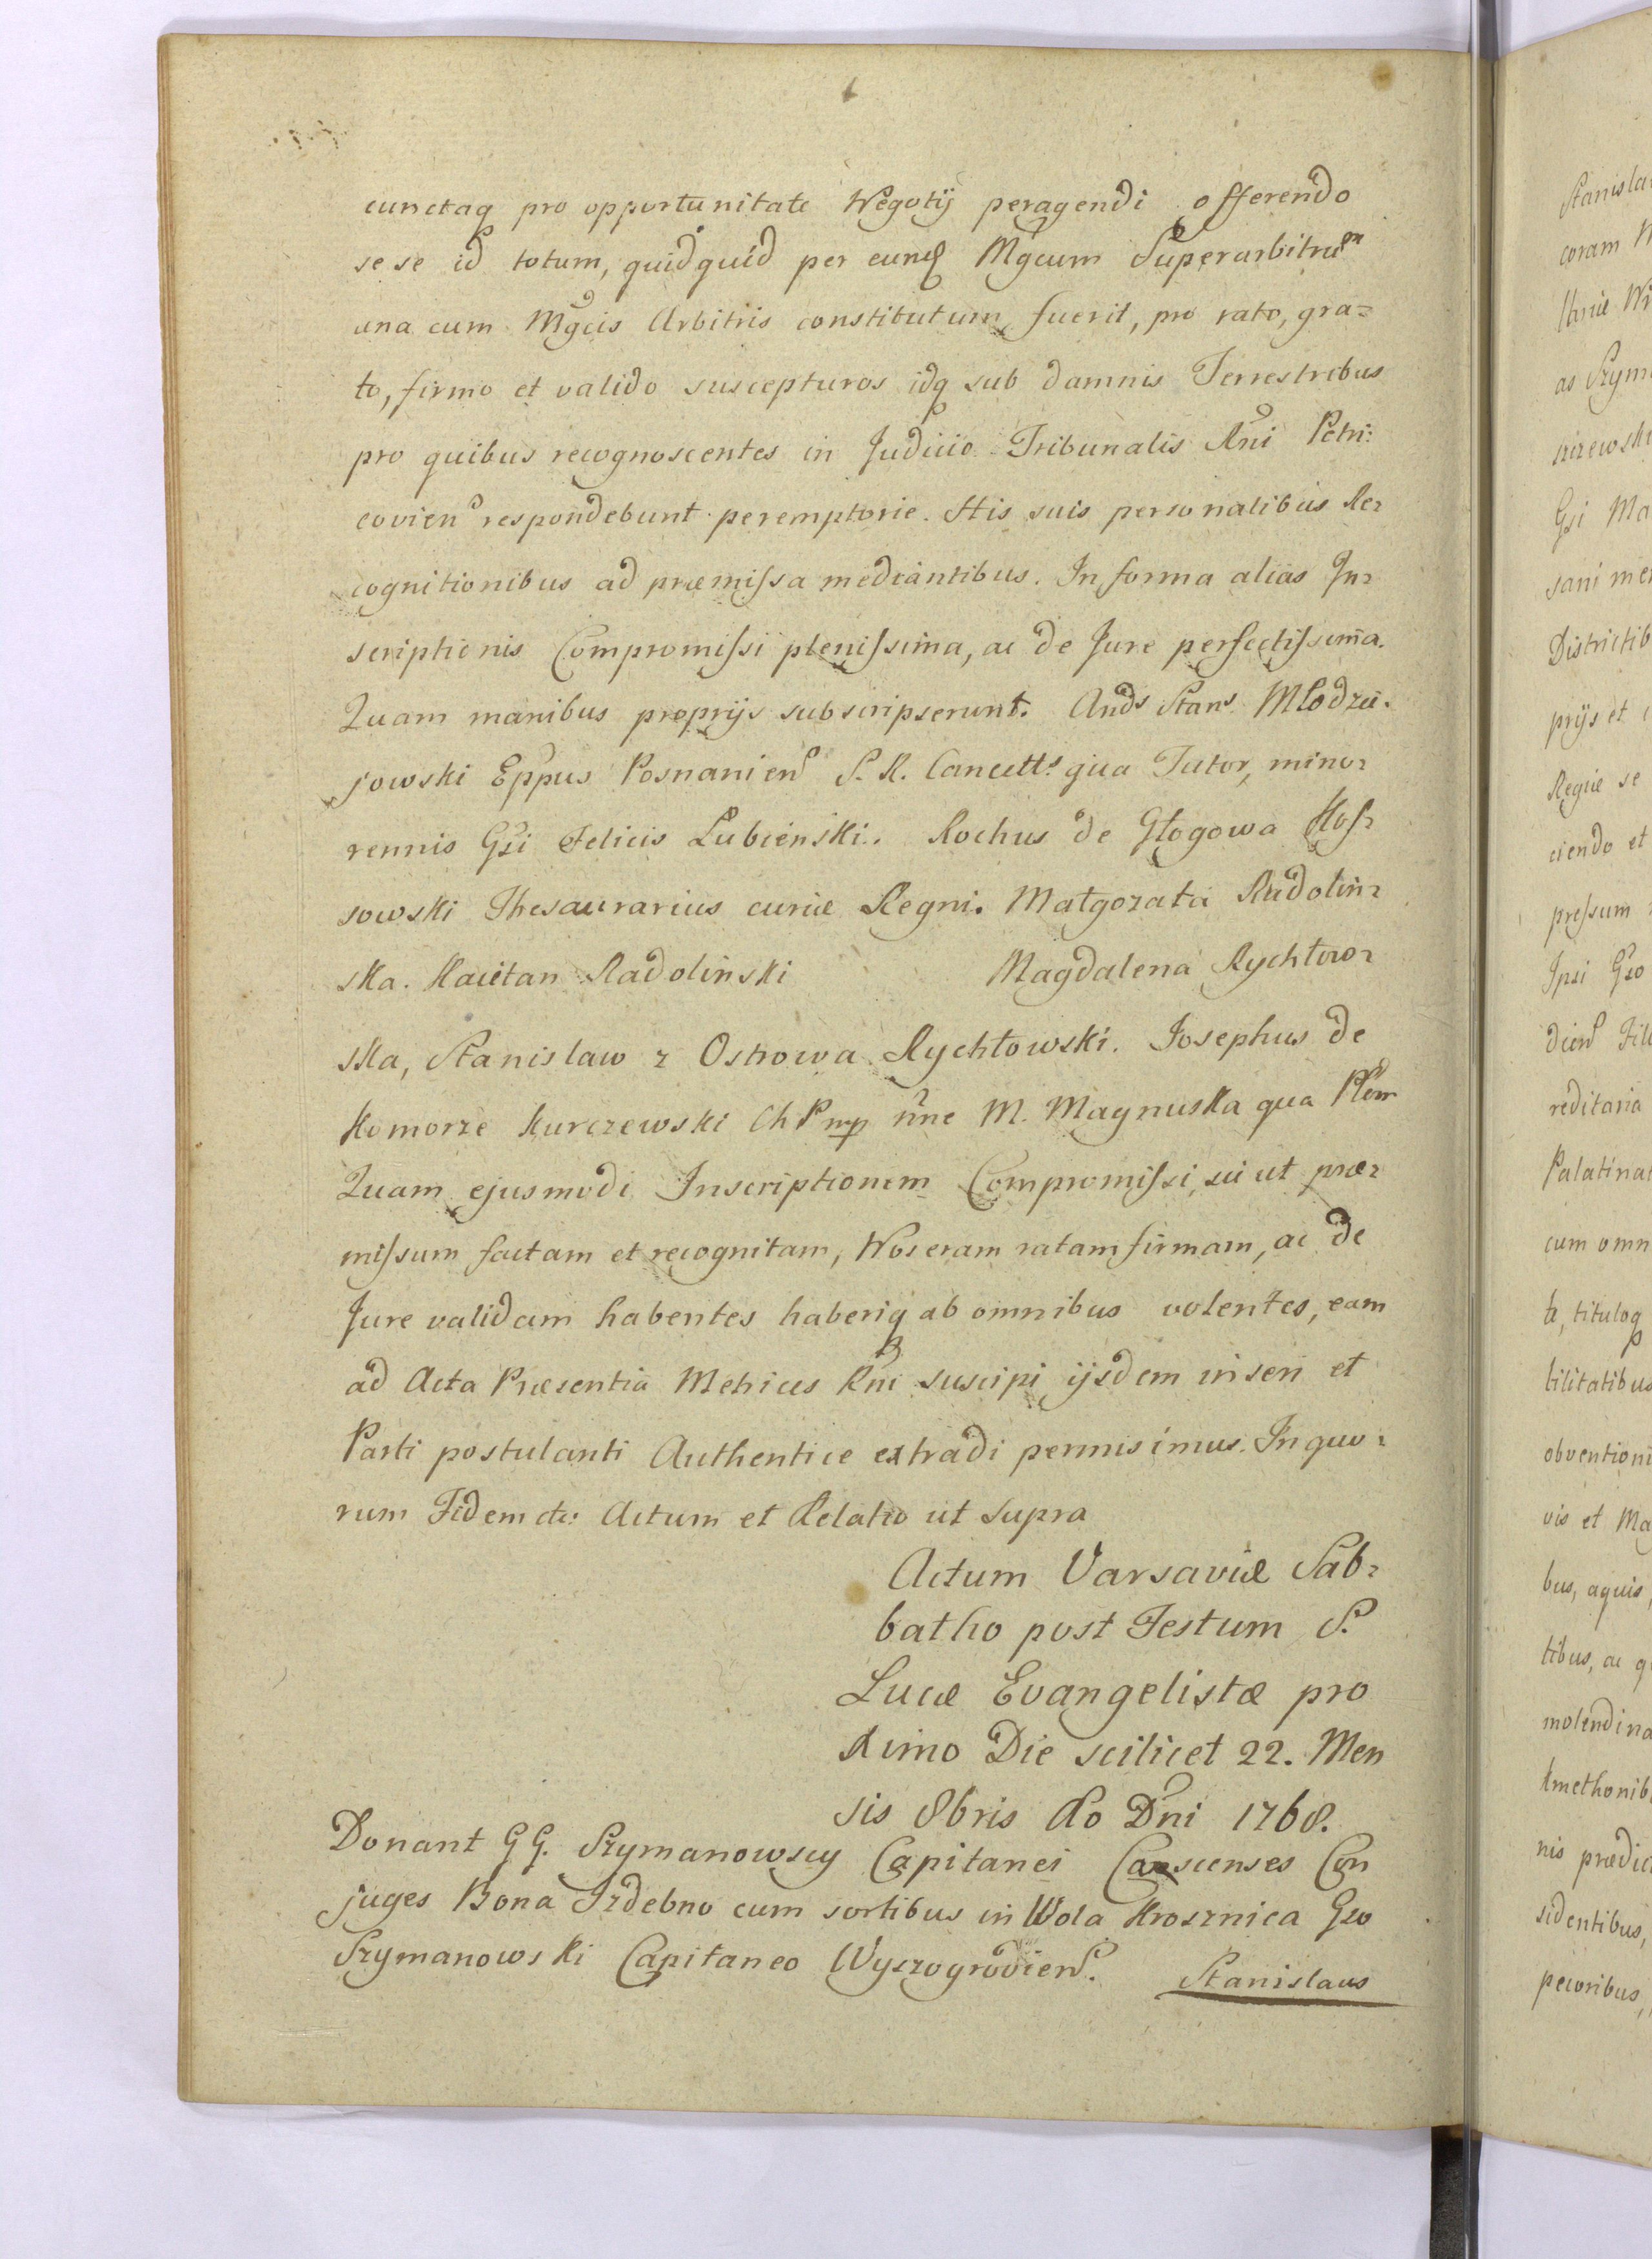 cunctaq pro opportunitate Negotij peragendi offerendo
se se id totum, quidquid per eund Mgcum Superarbitrum
una cum Mgcis Arbitris constitutum fuerit, pro rato, gra=
to, firmo et valido suscepturos idq sub damnis Terrestribus
pro quibus recognoscentes in Judicio Tribunalis Rni Petri:
covien respondebunt peremptorie. His suis personalibus Re=
cognitionibus ad præmissa mediantibus. In forma alias In=
scriptionis Compromissi plenissima, ac de Jure perfectissima.
Quam manibus proprijs subscripserunt. Ands Stans Młodzie=
jowski Eppus Posnanien S. R. Cancells qua Tutor, mino=
rennis Gsi Felicis Łubieński. Rochus de Głogowa Kos=
sowski Thesaurarius curiæ Regni. Małgorzata Radolin=
ska. Kaietan Radolinski Magdalena Rychłow=
ska, Stanislaw z Ostrowa Rychłowski. Josephus de
Komorze Kurczewski Ch P mp nne M. Magnuska qua Plem
Quam ejusmodi Inscriptionem Compromissi, sic ut præ=
missum factam et recognitam, Nos eram ratam firmam, ac de
Jure validam habentes haberiq ab omnibus volentes, eam
ad Acta Præsentia Metrices Rni suscipi ijsdem inseri et
Parti postulanti Authentice extradi permisimus. In quo=
rum Fidem etc: Actum et Relatio ut supra
Actum Varsaviæ Sab=
batho post Festum S.
Lucæ Evangelistæ pro
ximo Die scilicet 22. Men
sis 8bris Ao Dni 1768.
Donant GG. Szymanowscy Capitanei Canscenses Con
juges Bona Izdebno cum sortibus in Wola Krosznica Gso
Szymanowski Capitaneo Wyszogrodien.
Stanislaus